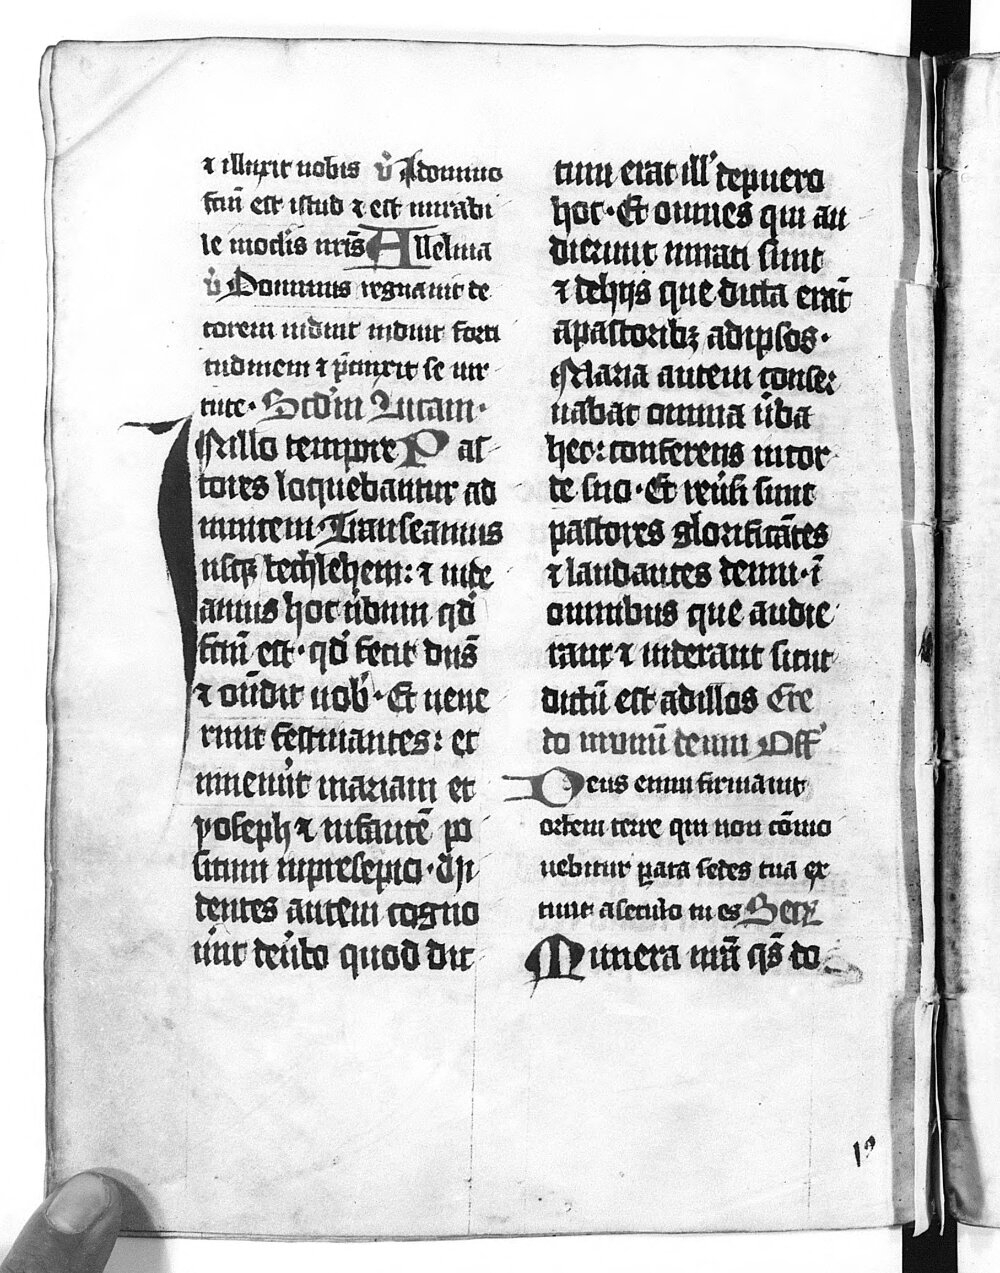 ⁊ illuxit nobis v̊ A domino
fcm̄ est istud ⁊ est mirabi
le in oclis nr̄is Alleluia
v̊ Dominus regnauit de
corem induit induit forti
tudinem ⁊ p̄cinxit se uir
tute· Scdm̄ Lucam·
In illo tempore Pas
tores loquebantur ad
inuicem· Transeamus
usq̨ bethleh̄em: ⁊ uide
amus hoc u̓bum qd̓
fcm̄ est· qd̓ fecit dn̄s
⁊ on̄dit nob̓· Et uene
runt festinantes: et
inuener̄t mariam et
yoseph ⁊ infantē po
situm inpresepio· Vi
dentes autem cogno
uer̄t deu̓bo quod dic
tum erat ill̓ depuero
hoc· Et omnes qui au
dierunt mirati sunt
⁊ dehijs que dicta erāt
apastoribꝫ adipsos·
Maria autem conser
uabat omnia u̓ba
hec: conferens incor
de suo· Et reu̓si sunt
pastores glorificātes
⁊ laudantes deum· ī
omnibus que audie
rant ⁊ uiderant sicut
dictū est ad illos Cre
do in unū deum Off̓
Deus enim firmauit
orbem terre qui non cōmo
uebitur ꝑata sedes tua ex
tunc aseculo tu es Secr̄
Munera nr̄a qs̄ do
19